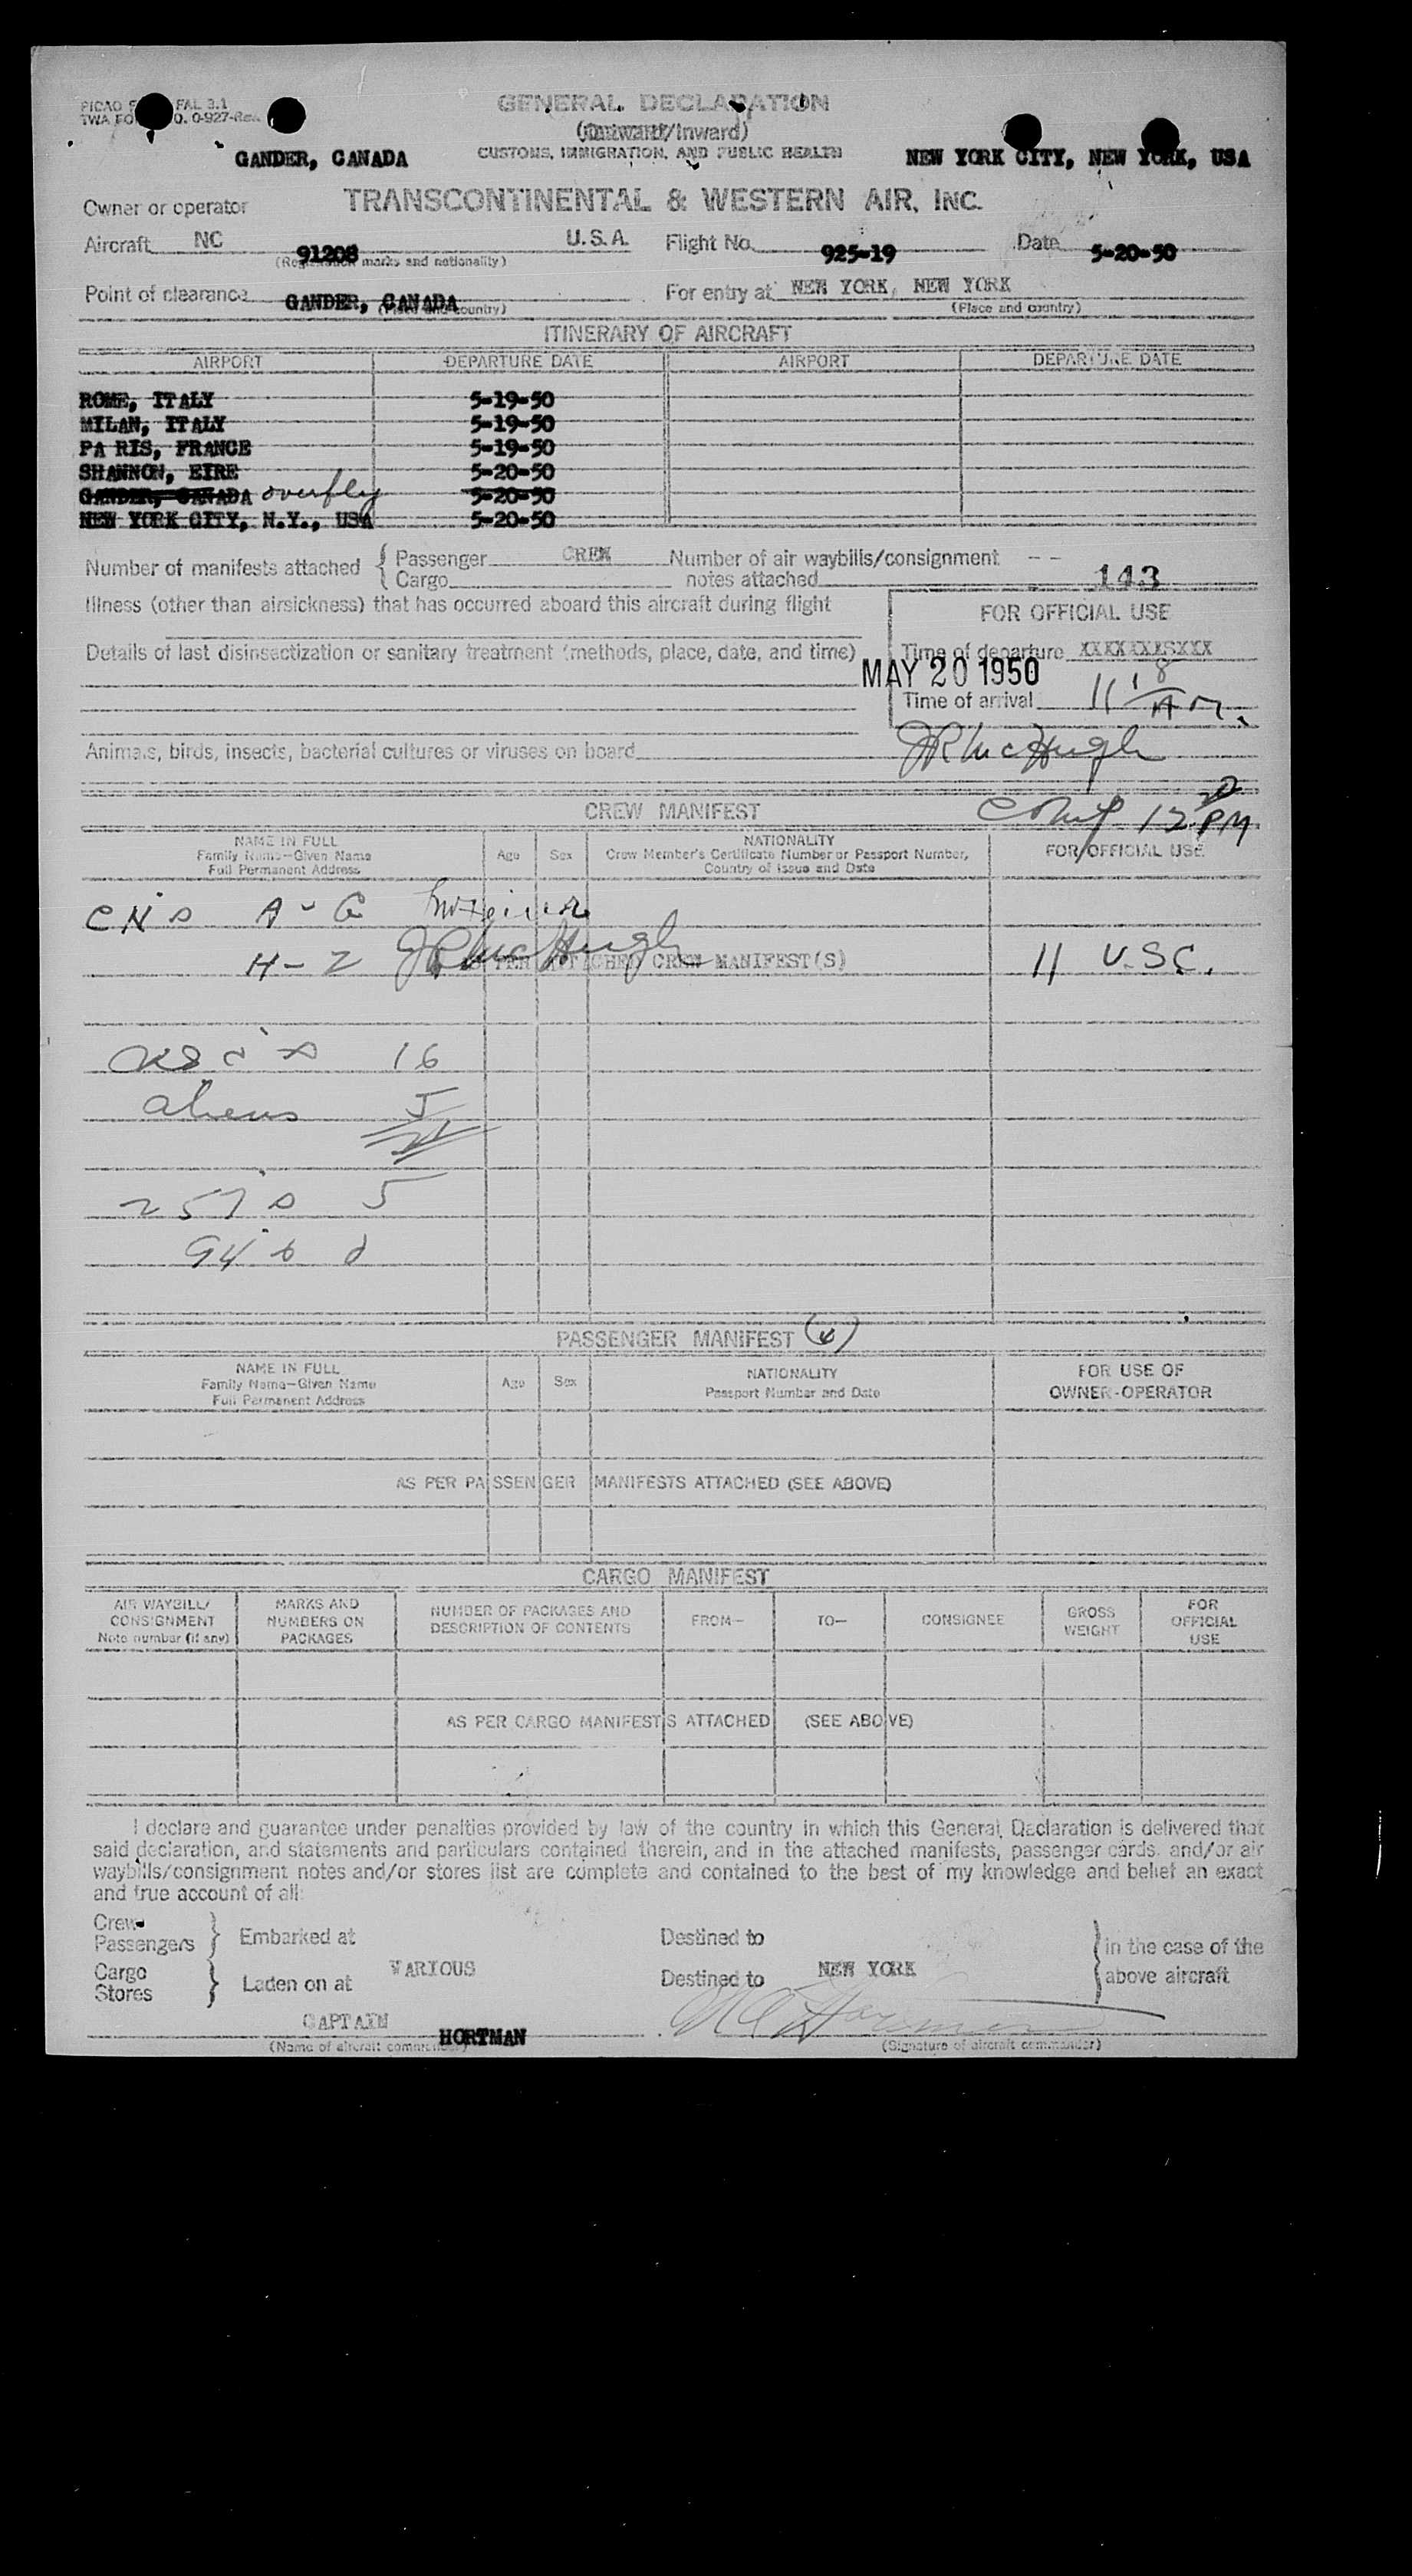 PICAO FAL 3.1
TWA FO O. 0-927-Rev.
GENERAL DECLARATION
(Outward/Inward)
CUSTOMS, IMMIGRATION, AND PUBLIC HEALTH
GANDER, CANADA
NEW YORK CITY, NEW YORK, USA
Owner or operator TRANSCONTINENTAL & WESTERN AIR, INC.
Aircraft NC 91208 U.S.A. Flight No. 925-19 Date 5-20-50
(Registration marks and nationality)
Point of clearance GANDER, CANADA For entry at NEW YORK, NEW YORK
(Place and country) (Place and country)
ITINERARY OF AIRCRAFT
AIRPORT DEPARTURE DATE AIRPORT DEPARTURE DATE
ROME, ITALY 5-19-50
MILAN, ITALY 5-19-50
PA RIS, FRANCE 5-19-50
SHANNON, EIRE 5-20-50
GANDER, CANADA overfly 5-20-50
NEW YORK CITY, N.Y., USA 5-20-50
Number of manifests attached { Passenger CREW Number of air waybills/consignment - -
Cargo notes attached
143
Illness (other than airsickness) that has occurred aboard this aircraft during flight
FOR OFFICIAL USE
Details of last disinsectization or sanitary treatment (methods, place, date, and time)
Time of departure XXXXXXXSXXX
MAY 20 1950
Time of arrival 11 18 AM.
Animals, birds, insects, bacterial cultures or viruses on board
JR McHugh
CREW MANIFEST
Comp 12 20 PM
NAME IN FULL
Family Name—Given Name
Full Permanent Address
Age Sex
NATIONALITY
Crew Member's Certificate Number or Passport Number,
Country of Issue and Date
FOR OFFICIAL USE
A - G
H - Z JR McHugh
AS PER ATTACHED CREW MANIFEST(S)
11 U.S.C.
16
aliens 5
21
257s 5
PASSENGER MANIFEST
NAME IN FULL
Family Name—Given Name
Full Permanent Address
Age Sex
NATIONALITY
Passport Number and Date
FOR USE OF
OWNER-OPERATOR
AS PER PASSENGER MANIFESTS ATTACHED (SEE ABOVE)
CARGO MANIFEST
AIR WAYBILL/
CONSIGNMENT
Note number (if any)
MARKS AND
NUMBERS ON
PACKAGES
NUMBER OF PACKAGES AND
DESCRIPTION OF CONTENTS
FROM—
TO—
CONSIGNEE
GROSS
WEIGHT
FOR
OFFICIAL
USE
AS PER CARGO MANIFESTS ATTACHED (SEE ABOVE)
I declare and guarantee under penalties provided by law of the country in which this General Declaration is delivered that
said declaration, and statements and particulars contained therein, and in the attached manifests, passenger cards, and/or air
waybills/consignment notes and/or stores list are complete and contained to the best of my knowledge and belief an exact
and true account of all:
Crew
Passengers } Embarked at Destined to } in the case of the
Cargo
Stores } Laden on at VARIOUS Destined to NEW YORK above aircraft
CAPTAIN HORTMAN
(Name of aircraft commander) (Signature of aircraft commander)